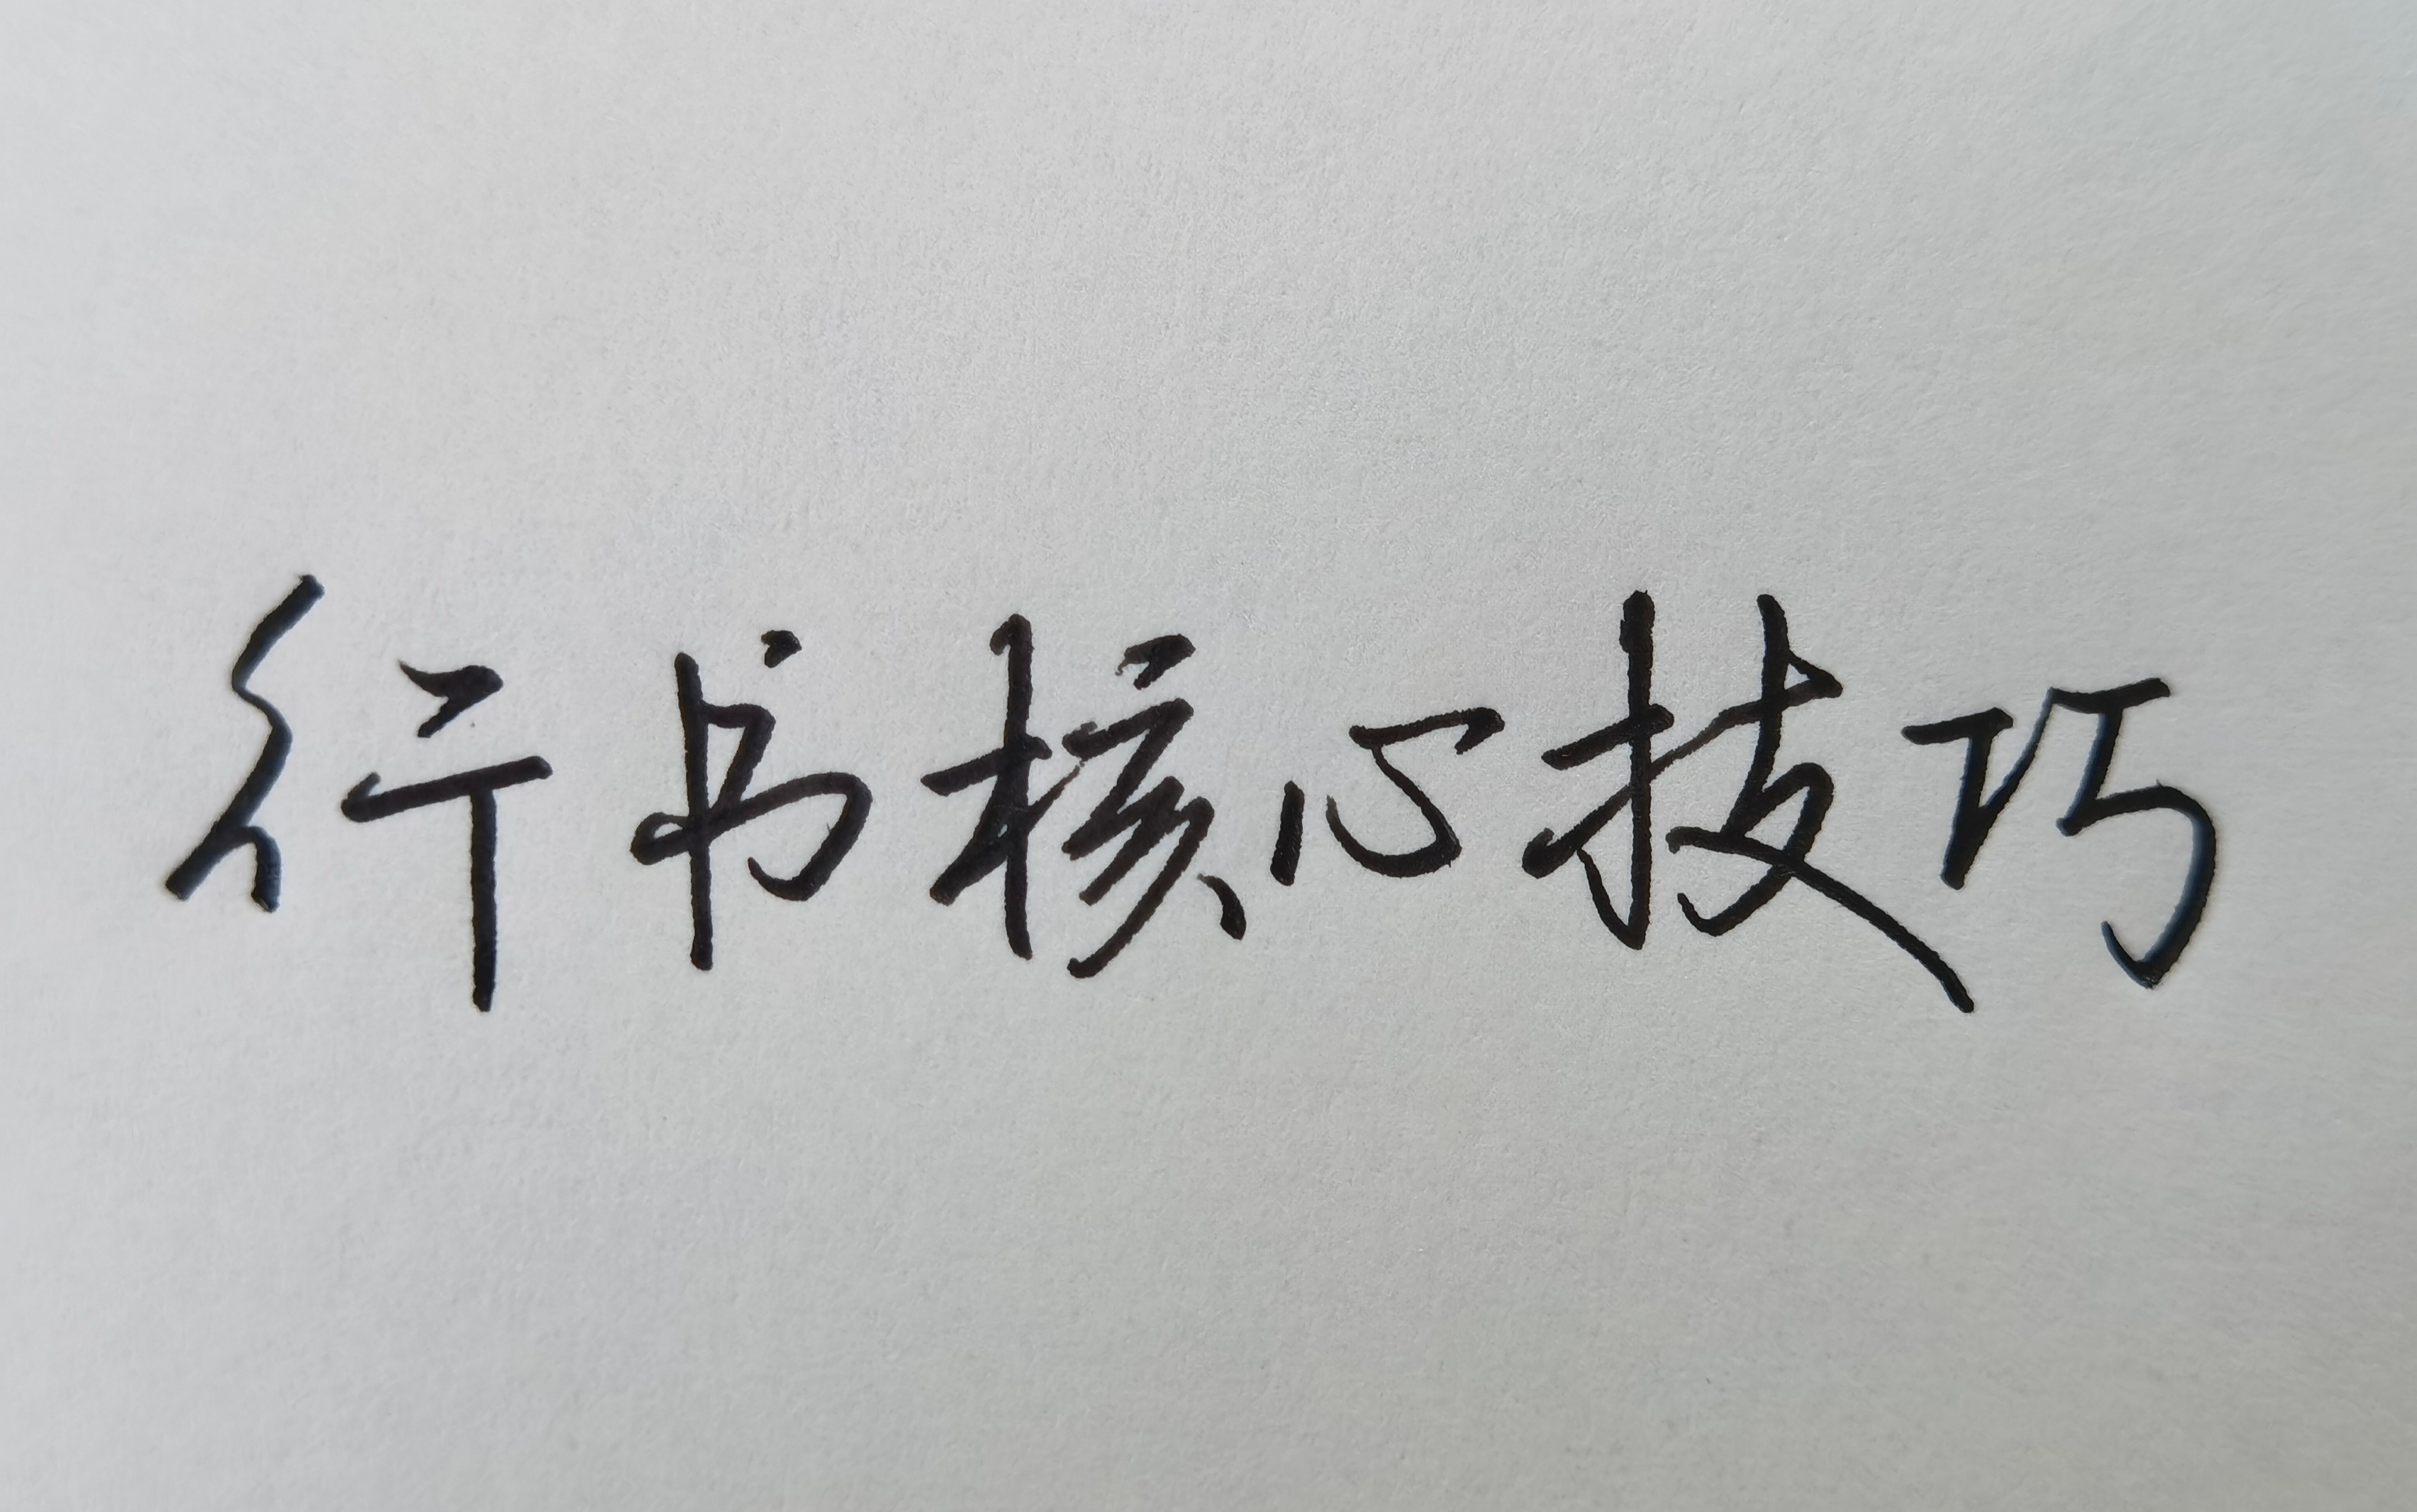 行书核心技巧